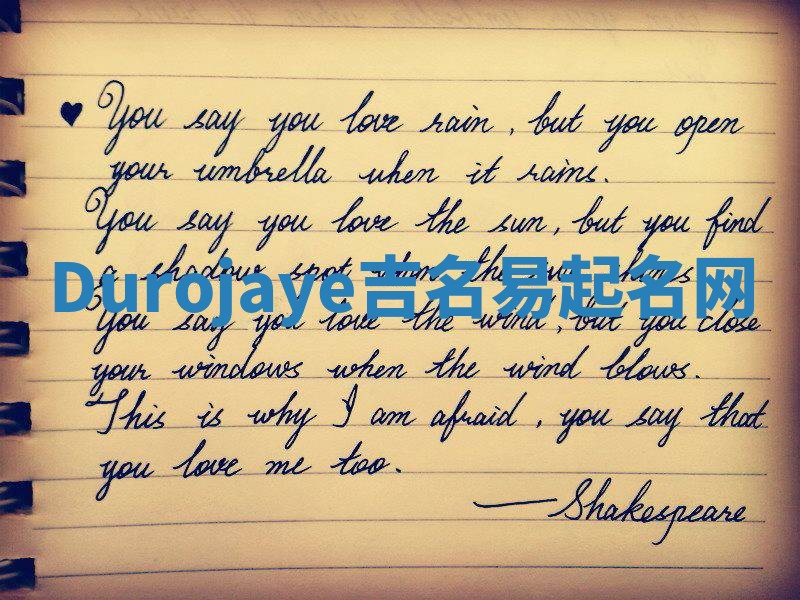 ♥ You say you love rain, but you open
your umbrella when it rains.
You say you love the sun, but you find
a shadow spot when the sun shines
Durojaye吉名易起名网
You say you love the wind, but you close
your windows when the wind blows.
This is why I am afraid, you say that
you love me too.
— Shakespeare